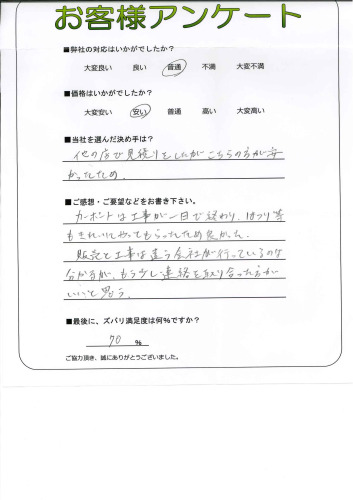 お客様アンケート
■弊社の対応はいかがでしたか？
大変良い 良い 普通 不満 大変不満
■価格はいかがでしたか？
大変安い 安い 普通 高い 大変高い
■当社を選んだ決め手は？
他の店で見積りをしたがこちらの方が安
かったため。
■ご感想・ご要望などをお書き下さい。
カーポートは工事が一日で終わり、はつり等
もきれいにやってもらったため良かった。
販売と工事は違う会社が行っているのは
分かるが、もう少し連絡を取り合った方が
いいと思う。
■最後に、ズバリ満足度は何%ですか？
70 %
ご協力頂き、誠にありがとうございました。